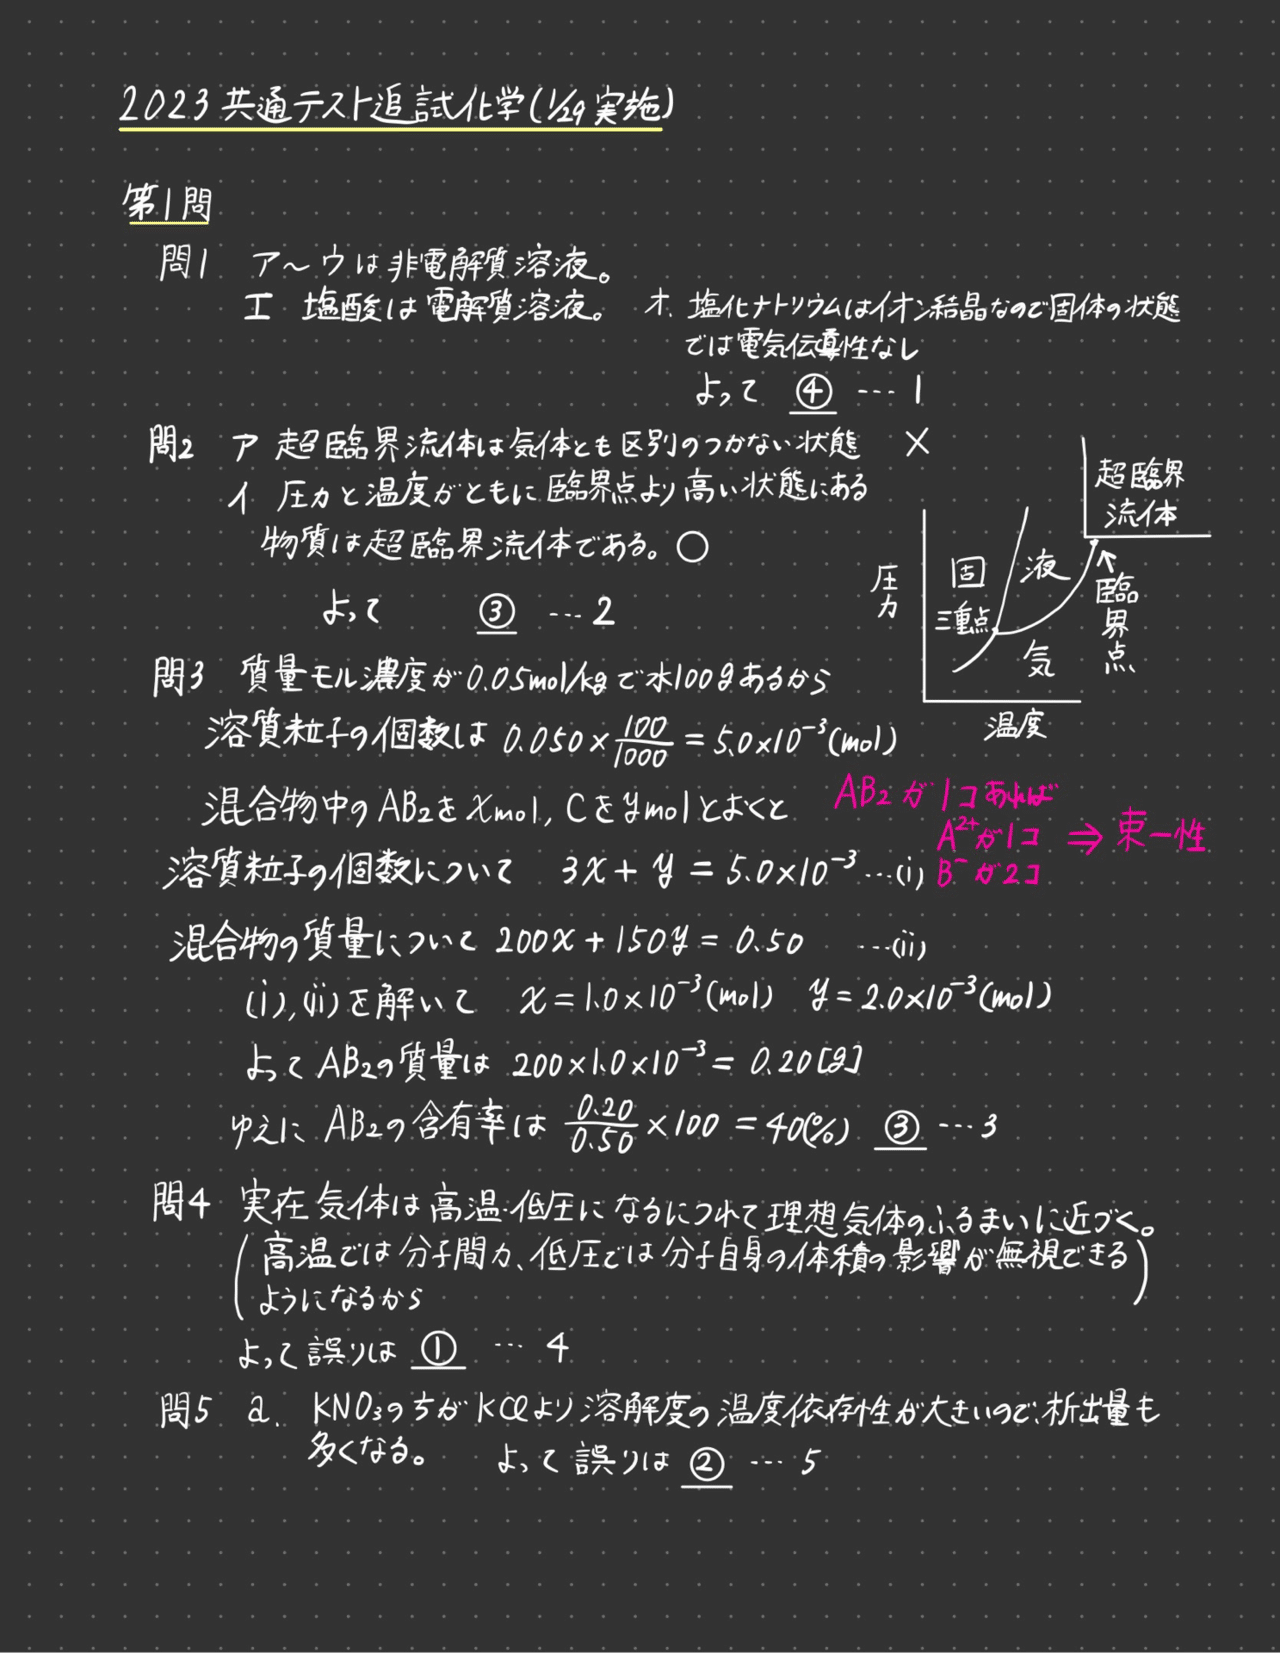 2023共通テスト追試化学(1/29実施)
第1問
問1 ア〜ウは非電解質溶液。
エ 塩酸は電解質溶液。 オ. 塩化ナトリウムはイオン結晶なので固体の状態
では電気伝導性なし
よって ④ … 1
問2 ア 超臨界流体は気体とも区別のつかない状態 ×
イ 圧力と温度がともに臨界点より高い状態にある
物質は超臨界流体である。○
よって ③ … 2
圧力
固
液
気
三重点
超臨界
流体
臨界点
温度
問3 質量モル濃度が0.05mol/kgで水100gあるから
溶質粒子の個数は 0.050×100/1000=5.0×10⁻³(mol)
混合物中のAB₂をxmol, Cをymolとおくと
AB₂が1コあれば
A²⁺が1コ ⇒ 束一性
B⁻が2コ
溶質粒子の個数について 3x+y=5.0×10⁻³ …(i)
混合物の質量について 200x+150y=0.50 …(ii)
(i),(ii)を解いて x=1.0×10⁻³(mol) y=2.0×10⁻³(mol)
よってAB₂の質量は 200×1.0×10⁻³=0.20[g]
ゆえに AB₂の含有率は 0.20/0.50×100=40(%) ③ … 3
問4 実在気体は高温・低圧になるにつれて理想気体のふるまいに近づく。
(高温では分子間力、低圧では分子自身の体積の影響が無視できる
ようになるから)
よって誤りは ① … 4
問5 a. KNO₃のちがKClより溶解度の温度依存性が大きいので、析出量も
多くなる。 よって誤りは ② … 5